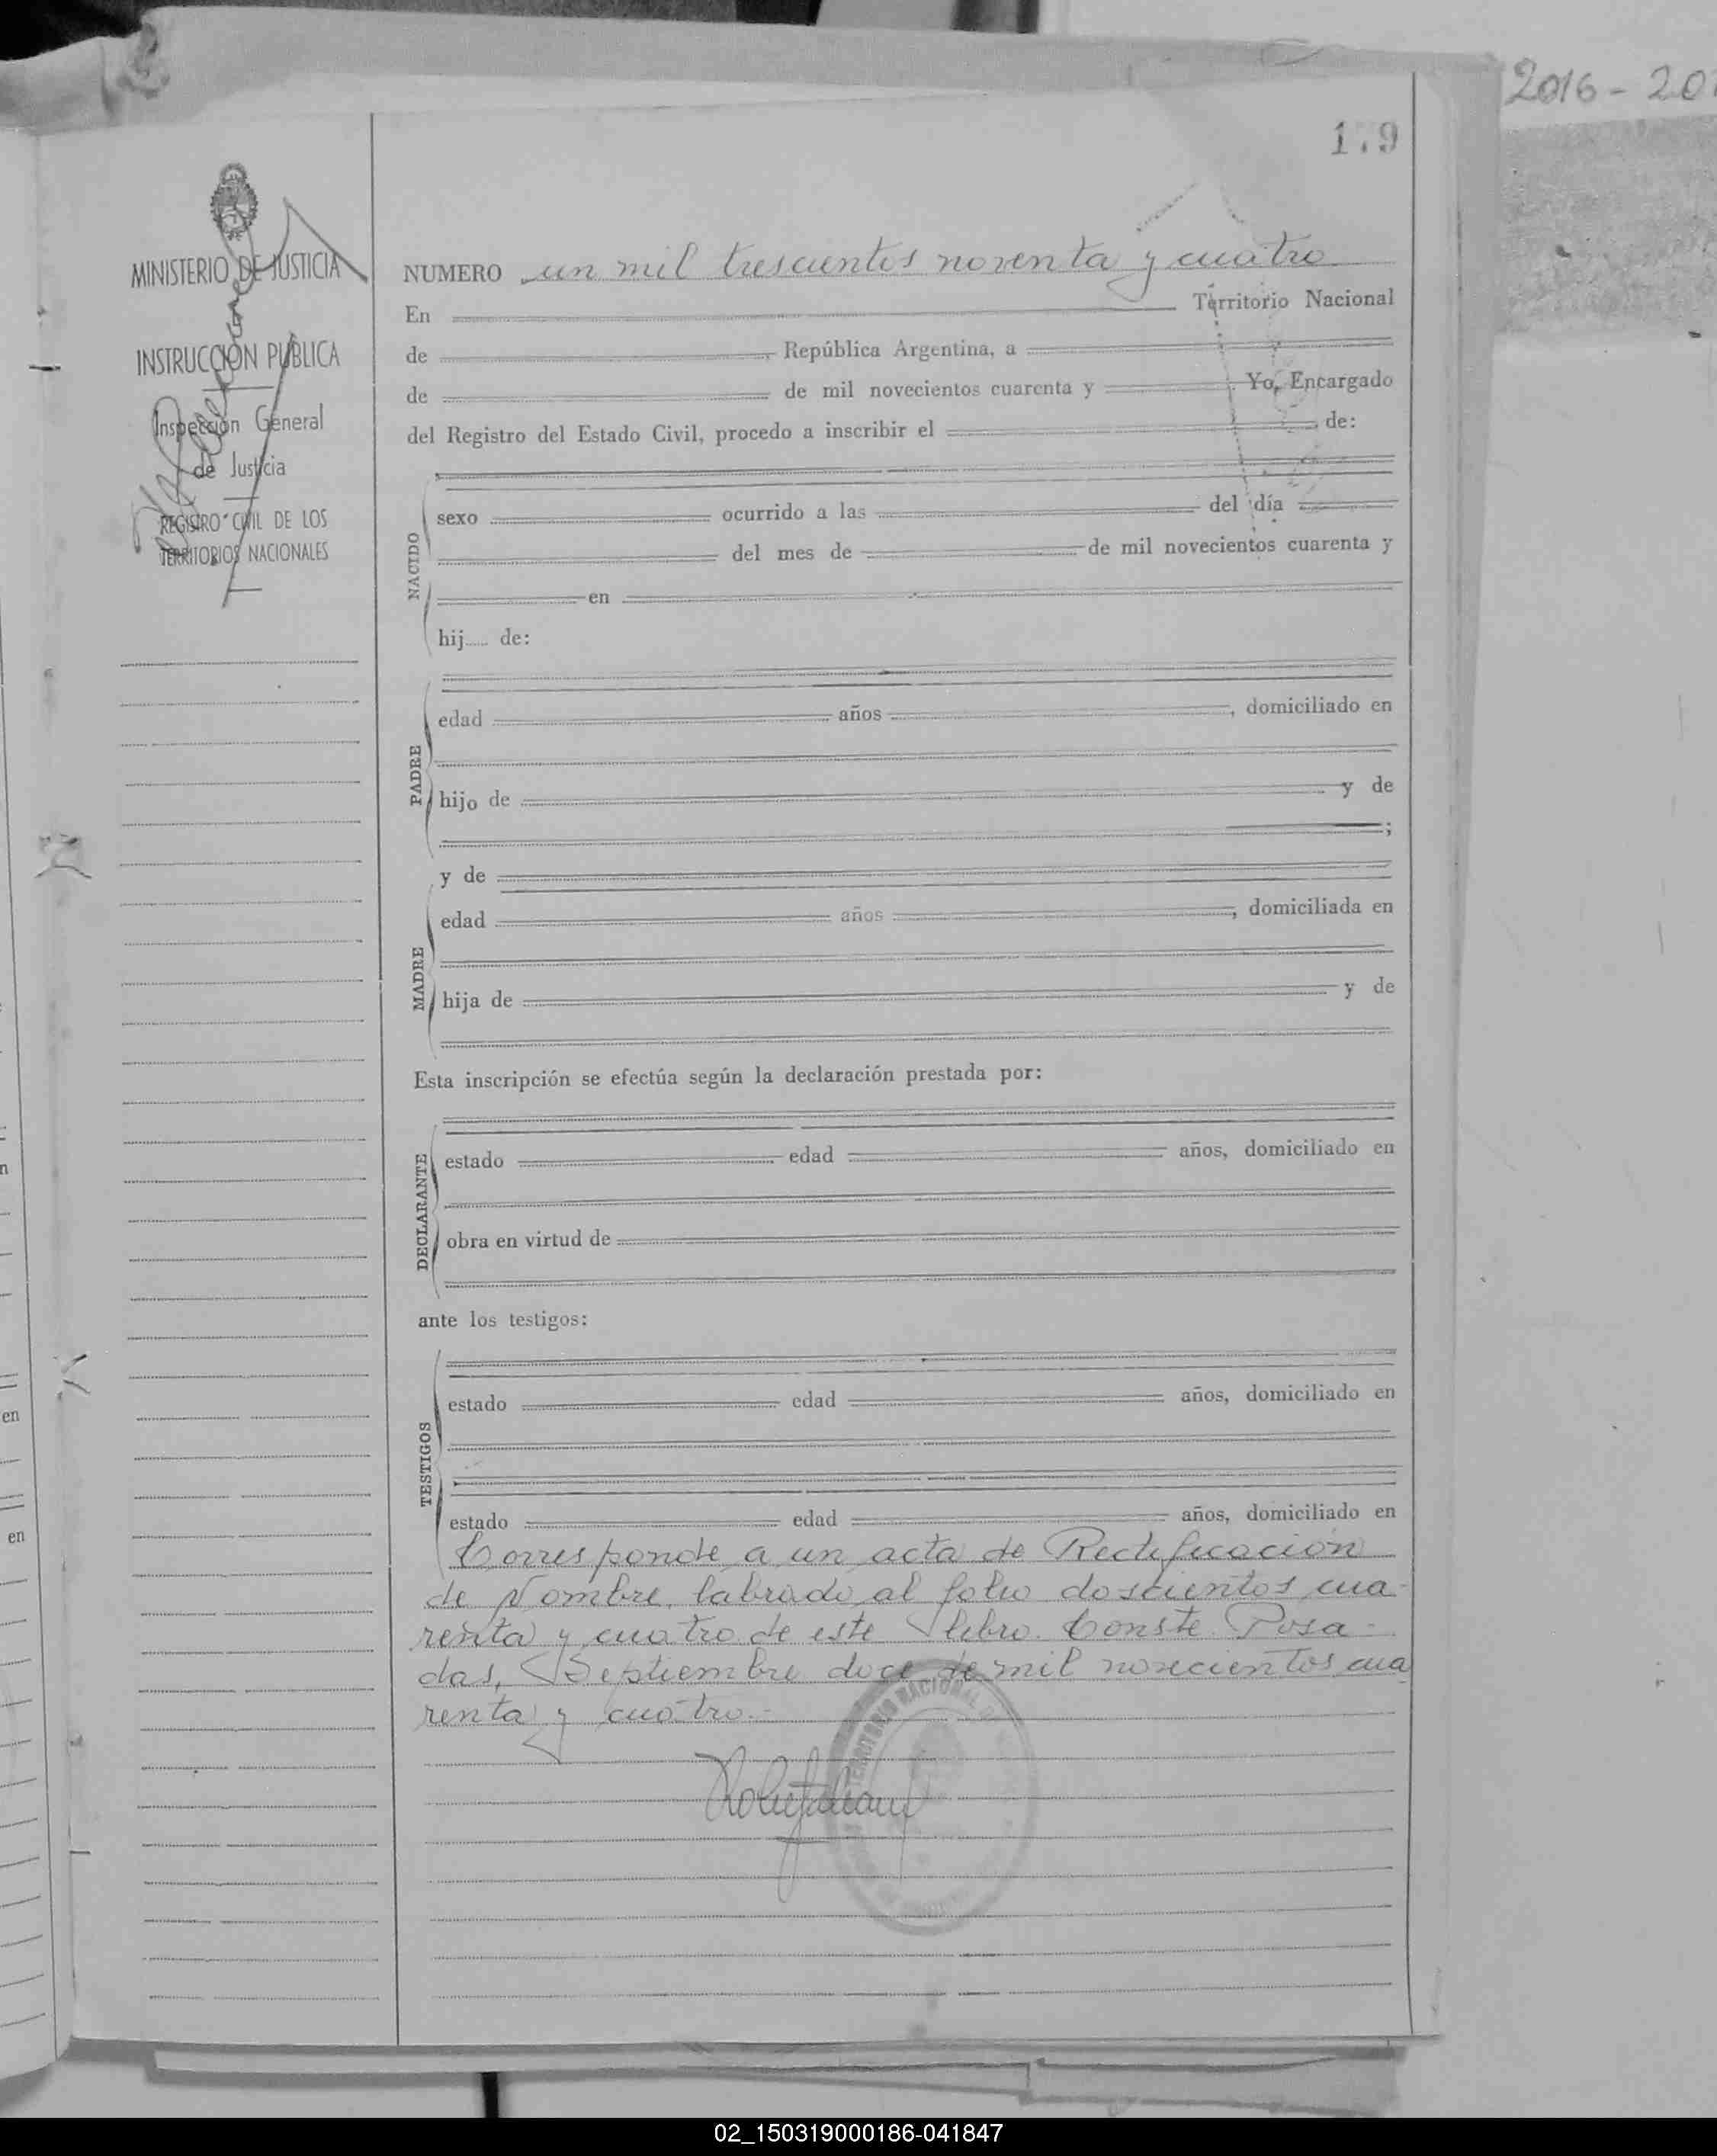 2016 - 20
1.9
MINISTERIO DE JUSTICIA
INSTRUCCION PUBLICA
Inspección General
de Justicia
REGISTRO CIVIL DE LOS
TERRITORIOS NACIONALES
NUMERO un mil trescientos noventa y cuatro
En Territorio Nacional
de República Argentina, a
de de mil novecientos cuarenta y Yo, Encargado
del Registro del Estado Civil, procedo a inscribir el de:
NACIDO
sexo ocurrido a las del día
del mes de de mil novecientos cuarenta y
en
hij..... de:
PADRE
edad años , domiciliado en
hijo de y de
;
y de
MADRE
edad años , domiciliada en
hija de y de
Esta inscripción se efectúa según la declaración prestada por:
DECLARANTE
estado edad años, domiciliado en
obra en virtud de
ante los testigos:
TESTIGOS
estado edad años, domiciliado en
estado edad años, domiciliado en
Corresponde a un acta de Rectificación
de Nombre, labrado al folio doscientos cua-
renta y cuatro de este libro. Conste. Posa-
das, Septiembre doce de mil novecientos cua
renta y cuatro.-
TERRITORIO NACIONAL
en
en
02_150319000186-041847